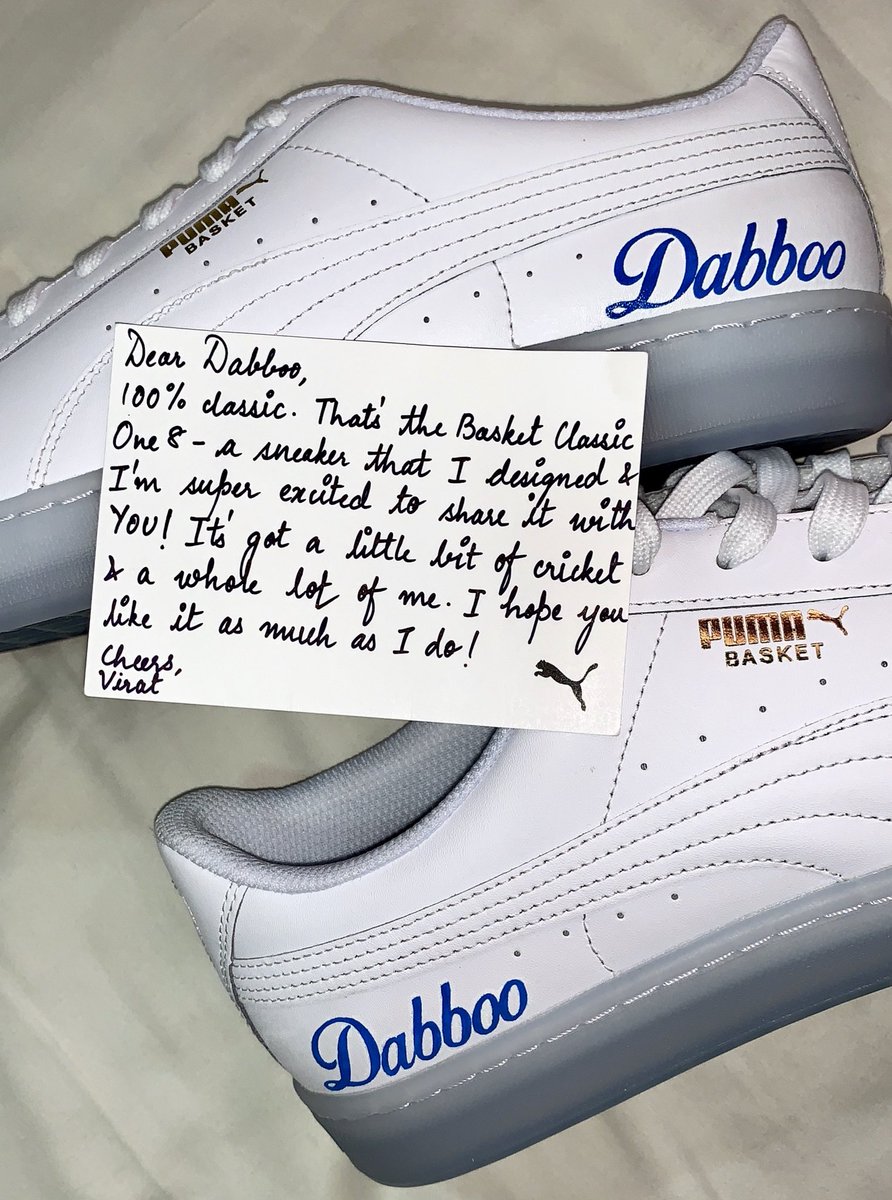 PUMA
BASKET
Dabboo
Dear Dabboo,
100% classic. That's the Basket Classic
One 8 - a sneaker that I designed &
I'm super excited to share it with
YOU! It's got a little bit of cricket
& a whole lot of me. I hope you
like it as much as I do!
Cheers,
Virat
PUMA
BASKET
Dabboo